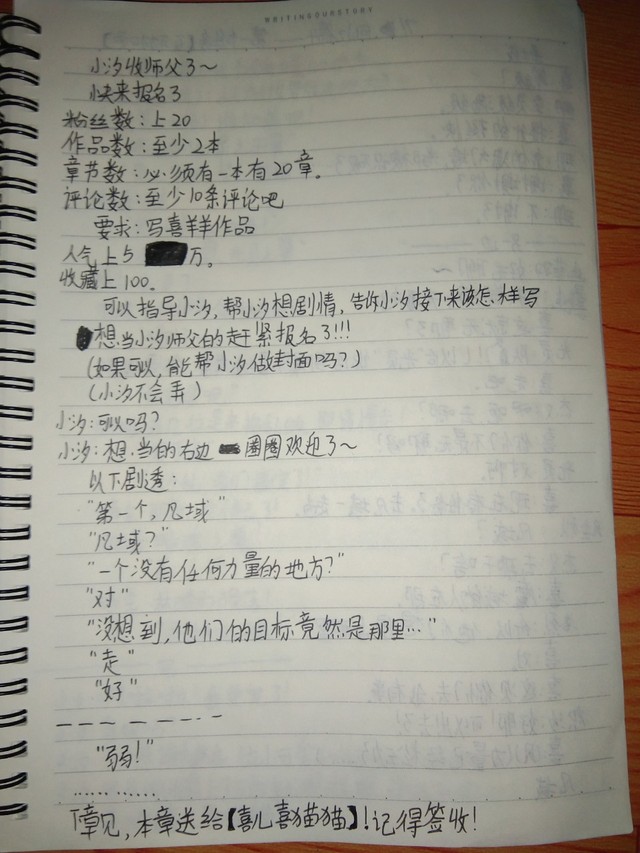 WRITINGOURSTORY
小汐收师父了～
快来报名了
粉丝数：上20
作品数：至少2本
章节数：必须有一本有20章。
评论数：至少10条评论吧
要求：写喜羊羊作品
人气上5万。
收藏上100。
可以指导小汐，帮小汐想剧情，告诉小汐接下来该怎样写
想当小汐师父的赶紧报名了!!!
(如果可以，能帮小汐做封面吗?)
(小汐不会弄)
小汐：可以吗?
小汐：想当的右边圈圈欢迎了～
以下剧透：
"第一个，凡域"
"凡域?"
"一个没有任何力量的地方?"
"对"
"没想到，他们的目标竟然是那里…"
"走"
"好"
"弱!"
…… ……
下章见，本章送给【喜儿喜猫猫】!记得签收!